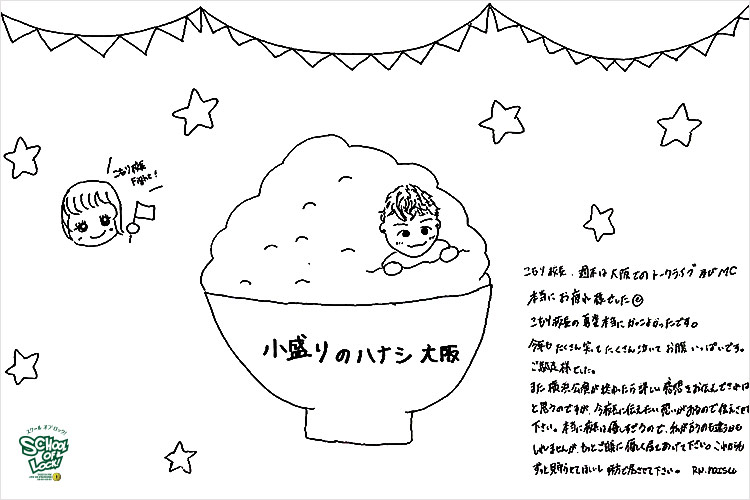 こもり校長
Fight!
小盛りのハナシ 大阪
こもり校長、週末は大阪でのトークライブ及びMC
本当にお疲れ様でした
こもり校長の 本当にかっこよかったです。
今年もたくさん笑ってたくさん泣いてお腹いっぱいです。
ご馳走様でした。
また横浜公演が終わったら詳しい感想をお伝えできれば
と思うのですが、今校長に伝えたい思いがあるので伝えさせ
下さい。本当に校長は優しすぎるので、私が言うのも違うかも
しれませんが、もっとご自身に優しく してあげて下さい。これからも
ずっと させて下さい。 RN.
スクール オブ ロック!
SCHOOL
OF
LOCK!